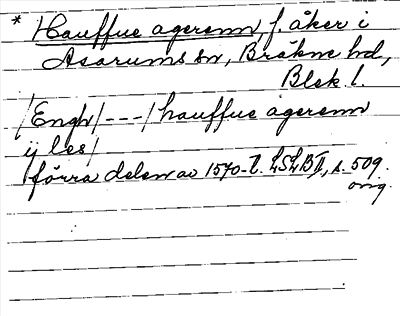 * Hauffue agerenn, f. åker i
Asarums sn, Bräkne hd,
Blek l.
/Engh/ - - - / hauffue agerenn
ij les/
förra delen av 1570-t. LSLB II, s. 509.
orig.